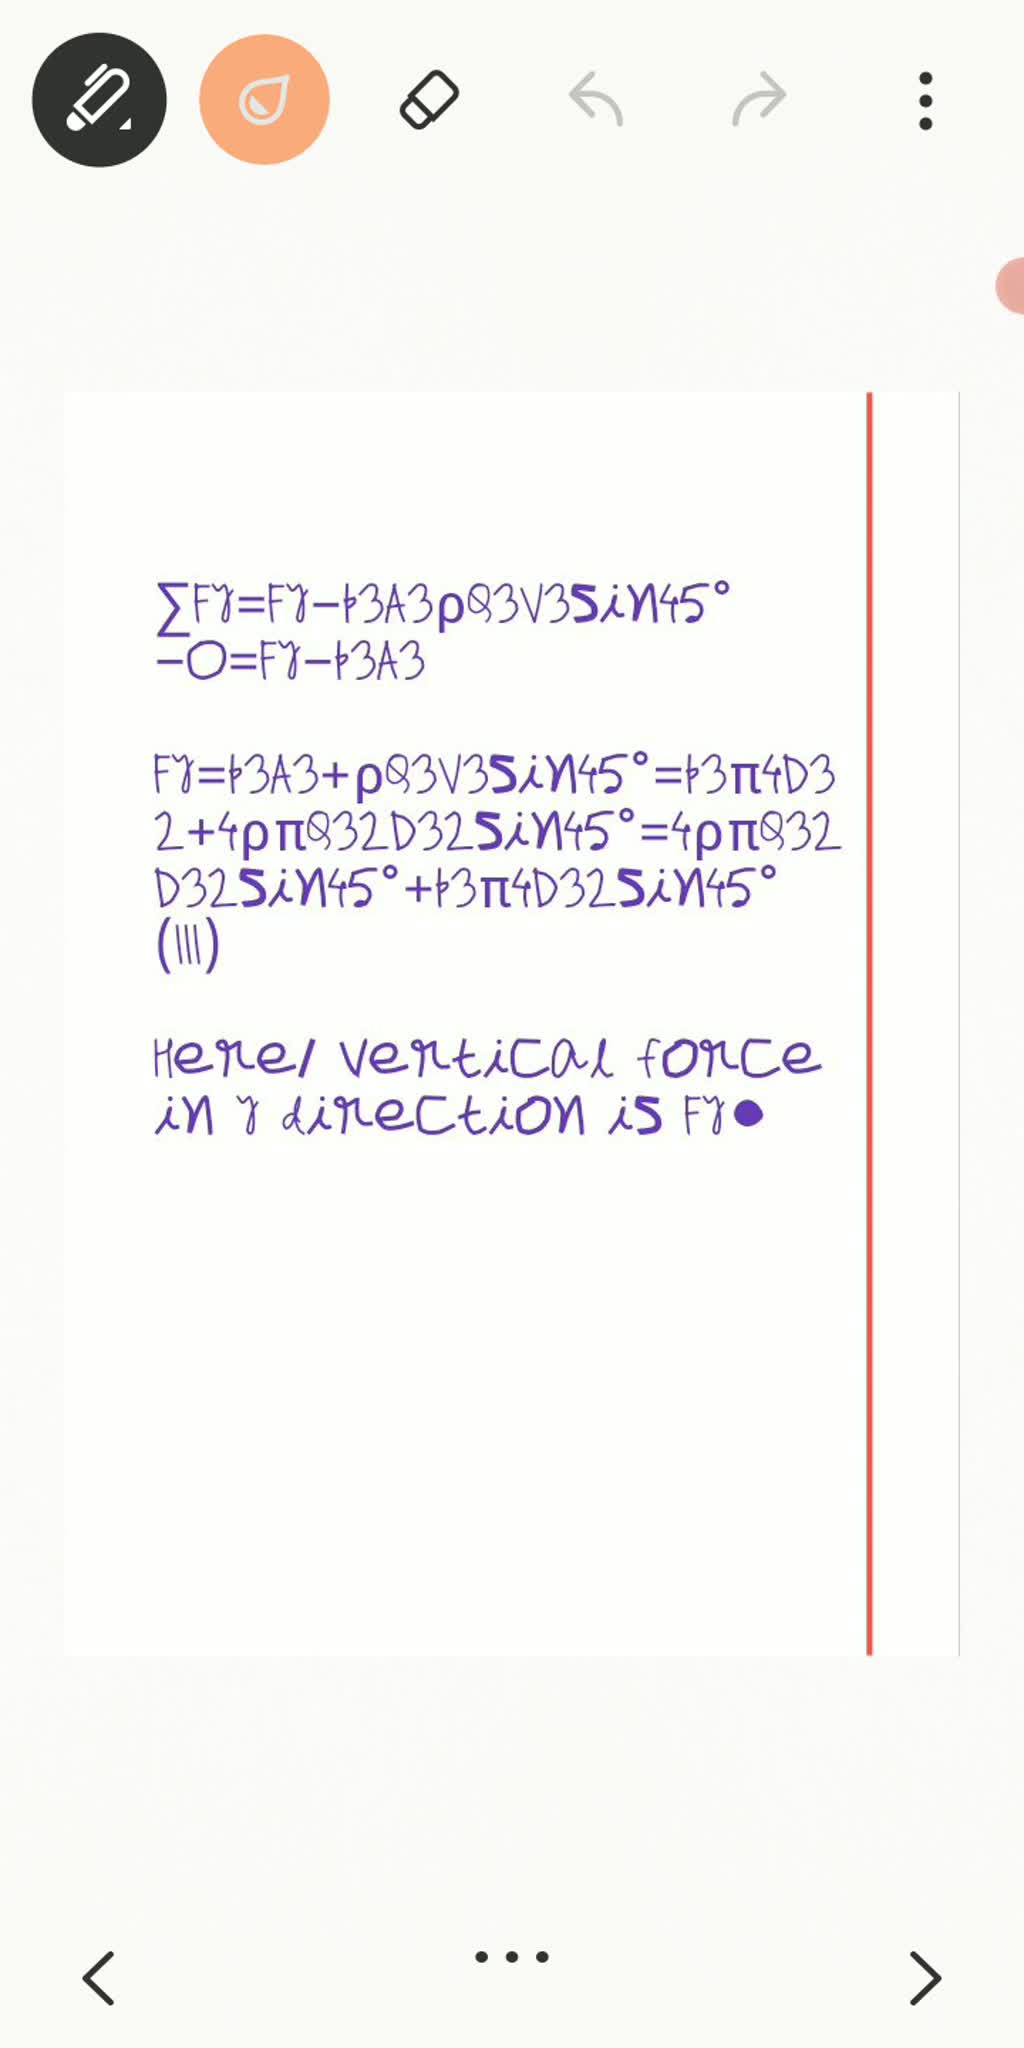 ∑Fy=Fy−p3A3ρQ3V3sin45°
−0=Fy−p3A3
Fy=p3A3+ρQ3V3sin45°=p3π4D3
2+4ρπQ32D32sin45°=4ρπQ32
D32sin45°+p3π4D32sin45°
(III)
Here/ vertical force
in y direction is Fy●